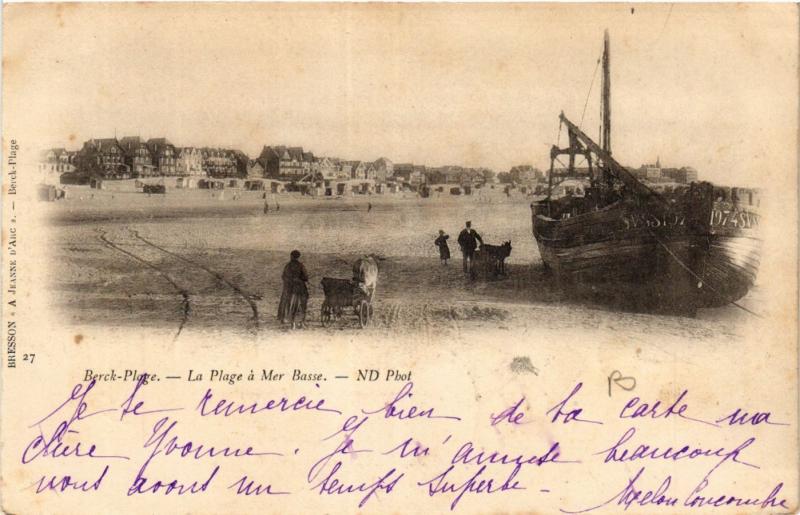 BRESSON « A JEANNE D'ARC ». — Berck-Plage
27
1974 SV
Berck-Plage. — La Plage à Mer Basse. — ND Phot
Je te remercie bien de ta carte ma
chère Yvonne. Je m'amuse beaucoup
nous avons un temps superbe -